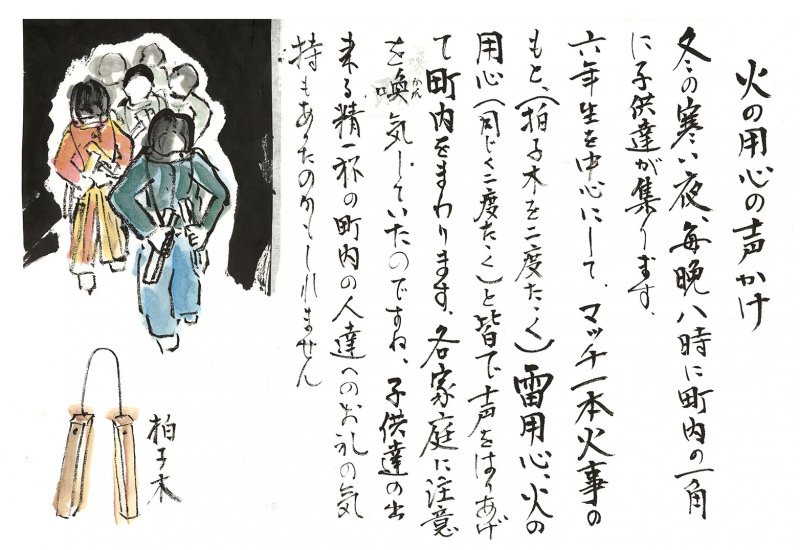 火の用心の声かけ
冬の寒い夜、毎晩八時に町内の一角
に子供達が集ります。
六年生を中心にして、マッチ一本火事の
もと、(拍子木を二度たゝく)雷用心、火の
用心(同じく二度たゝく)と皆で大声をはりあげ
て町内をまわります。各家庭に注意
を喚気していたのですね、子供達の出
来る精一杯の町内の人達へのお礼の気
持もあったのかもしれません
拍子木